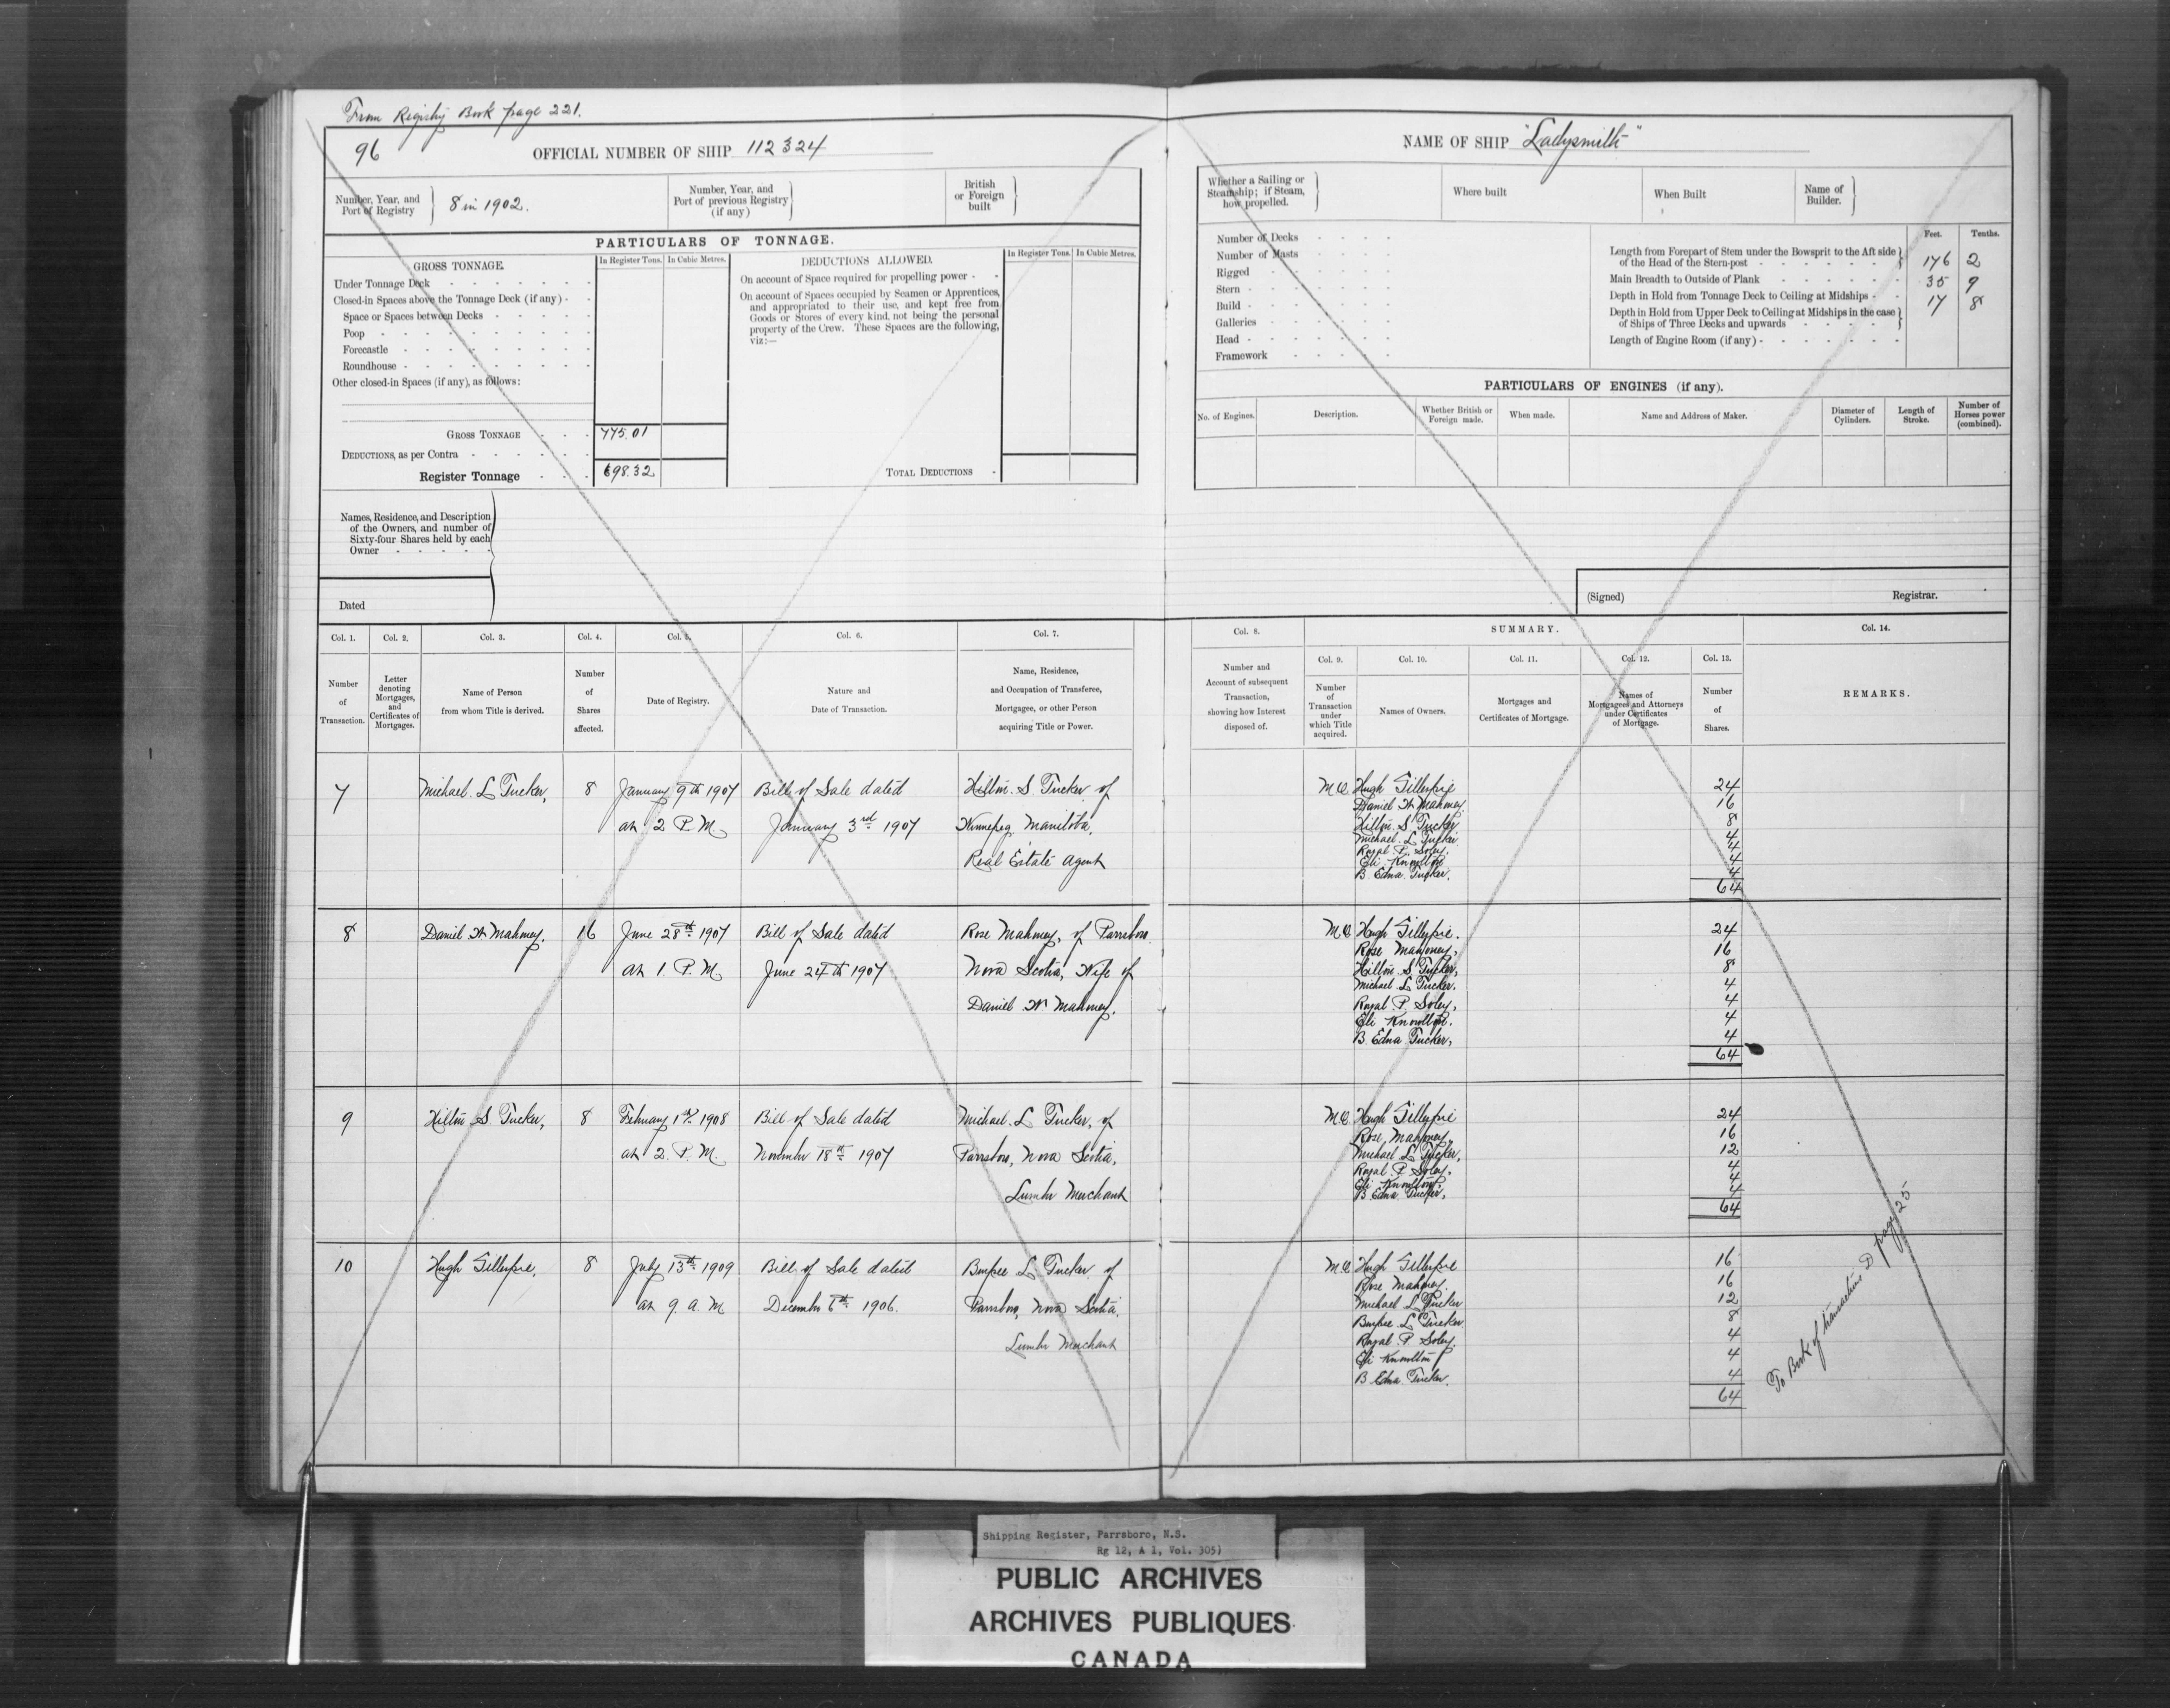 From Registry Book page 221.
96
OFFICIAL NUMBER OF SHIP 112324
Number, Year, and Port of Registry
8 in 1902.
Number, Year, and Port of previous Registry (if any)
British or Foreign built
PARTICULARS OF TONNAGE.
GROSS TONNAGE.
In Register Tons.
In Cubic Metres.
Under Tonnage Deck
Closed-in Spaces above the Tonnage Deck (if any)
Space or Spaces between Decks
Poop
Forecastle
Roundhouse
Other closed-in Spaces (if any), as follows:
GROSS TONNAGE 775.01
DEDUCTIONS, as per Contra
Register Tonnage 698.32
DEDUCTIONS ALLOWED.
In Register Tons.
In Cubic Metres.
On account of Space required for propelling power
On account of Spaces occupied by Seamen or Apprentices,
and appropriated to their use, and kept free from
Goods or Stores of every kind, not being the personal
property of the Crew. These Spaces are the following,
viz:—
TOTAL DEDUCTIONS
Names, Residence, and Description
of the Owners, and number of
Sixty-four Shares held by each
Owner
Dated
NAME OF SHIP "Ladysmith"
Whether a Sailing or Steamship; if Steam, how propelled.
Where built
When Built
Name of Builder.
Number of Decks
Number of Masts
Rigged
Stern
Build
Galleries
Head
Framework
Feet. Tenths.
Length from Forepart of Stem under the Bowsprit to the Aft side
of the Head of the Stern-post 176 2
Main Breadth to Outside of Plank 35 9
Depth in Hold from Tonnage Deck to Ceiling at Midships 17 8
Depth in Hold from Upper Deck to Ceiling at Midships in the case
of Ships of Three Decks and upwards
Length of Engine Room (if any)
PARTICULARS OF ENGINES (if any).
No. of Engines.
Description.
Whether British or Foreign made.
When made.
Name and Address of Maker.
Diameter of Cylinders.
Length of Stroke.
Number of Horses power (combined).
(Signed)
Registrar.
Col. 1. Number of Transaction.
Col. 2. Letter denoting Mortgages, and Certificates of Mortgages.
Col. 3. Name of Person from whom Title is derived.
Col. 4. Number of Shares affected.
Col. 5. Date of Registry.
Col. 6. Nature and Date of Transaction.
Col. 7. Name, Residence, and Occupation of Transferee, Mortgagee, or other Person acquiring Title or Power.
Col. 8. Number and Account of subsequent Transaction, showing how Interest disposed of.
SUMMARY.
Col. 9. Number of Transaction under which Title acquired.
Col. 10. Names of Owners.
Col. 11. Mortgages and Certificates of Mortgage.
Col. 12. Names of Mortgagees and Attorneys under Certificates of Mortgage.
Col. 13. Number of Shares.
Col. 14. REMARKS.
7 Michael L Tucker, 8 January 9th 1907 Bill of Sale dated Hilton S. Tucker of
at 2 P.M. January 3rd 1907 Winnepeg Manitoba,
Real Estate Agent
Hugh Gillespie 24
Daniel W Mahoney 16
Hilton S Tucker 8
Michael L Tucker 4
Royal P. Soley. 4
Eli Knowlton 4
B. Edna Tucker. 4
64
8 Daniel W Mahoney. 16 June 28th 1907 Bill of Sale dated Rose Mahoney, of Parrsboro
at 1. P.M June 24th 1907 Nova Scotia, Wife of
Daniel W Mahoney.
Hugh Gillespie. 24
Rose Mahoney, 16
Hilton S Tucker, 8
Michael L Tucker. 4
Royal P Soley, 4
Eli Knowlton. 4
B. Edna Tucker, 4
64
9 Hilton S Tucker, 8 February 1st 1908 Bill of Sale dated Michael L Tucker, of
at 2. P.M. November 18th 1907 Parrsboro, Nova Scotia,
Lumber Merchant
Hugh Gillespie 24
Rose Mahoney, 16
Michael L Tucker, 12
Royal P Soley. 4
Eli Knowlton. 4
B. Edna Tucker, 4
64
10 Hugh Gillespie, 8 July 13th 1909 Bill of Sale dated Burpee L Tucker of
at 9. a.M December 6th 1906. Parrsboro, Nova Scotia,
Lumber Merchant
Hugh Gillespie 16
Rose Mahoney. 16
Michael L Tucker 12
Burpee L Tucker 8
Royal P Soley. 4
Eli Knowlton 4
B Edna Tucker. 4
64
To Book of transactions D page 25
Shipping Register, Parrsboro, N.S.
Rg 12, A 1, Vol. 305)
PUBLIC ARCHIVES
ARCHIVES PUBLIQUES
CANADA